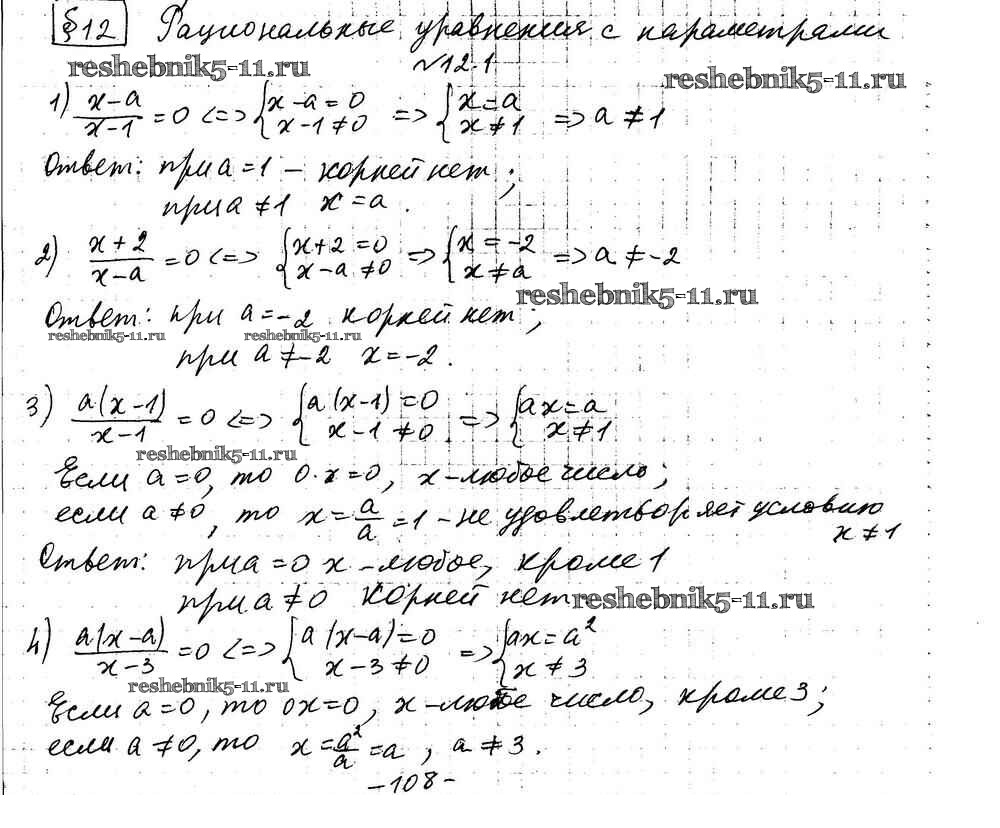 §12 Рациональные уравнения с параметрами
reshebnik5-11.ru №12.1 reshebnik5-11.ru
1) (x-a)/(x-1) = 0 <=> {x-a=0; x-1≠0 => {x=a; x≠1 => a≠1
Ответ: при a=1 – корней нет;
при a≠1 x=a.
2) (x+2)/(x-a) = 0 <=> {x+2=0; x-a≠0 => {x=-2; x≠a => a≠-2
reshebnik5-11.ru
Ответ: при a=-2 корней нет;
reshebnik5-11.ru reshebnik5-11.ru
при a≠-2 x=-2.
3) a(x-1)/(x-1) = 0 <=> {a(x-1)=0; x-1≠0 => {ax=a; x≠1
reshebnik5-11.ru
Если a=0, то 0·x=0, x-любое число;
если a≠0, то x=a/a=1 - не удовлетворяет условию
x≠1
Ответ: при a=0 x-любое, кроме 1
при a≠0 корней нет reshebnik5-11.ru
4) a(x-a)/(x-3) = 0 <=> {a(x-a)=0; x-3≠0 => {ax=a²; x≠3
reshebnik5-11.ru
Если a=0, то 0x=0, x-любое число, кроме 3;
если a≠0, то x=a²/a=a, a≠3.
-108-